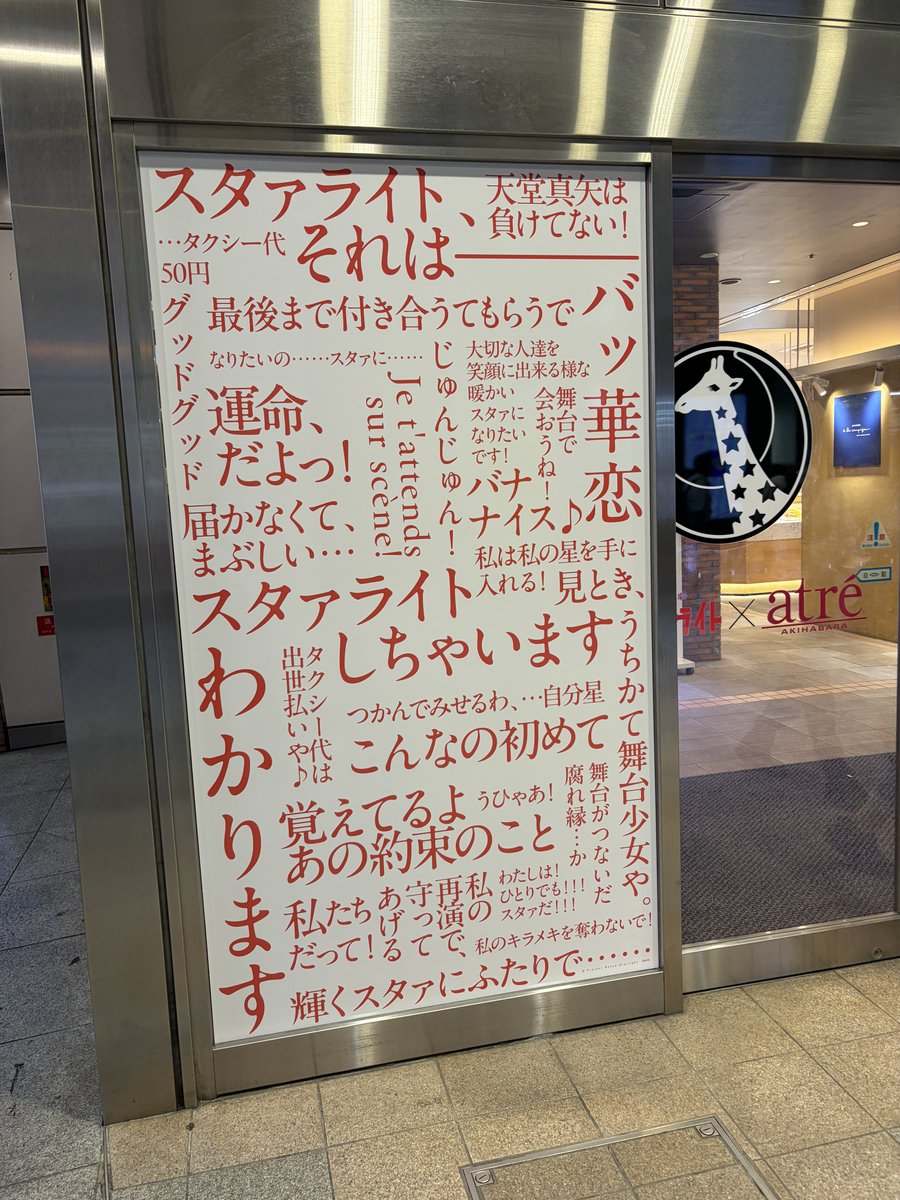 スタァライト、
天堂真矢は
負けてない!
…タクシー代
50円
それは――――
バッ華恋
グッドグッド
最後まで付き合うてもらうで
なりたいの……スタァに……
運命、
だよっ!
Je t'attends
sur scène!
じゅんじゅん!
大切な人達を
笑顔に出来る様な
暖かい
スタァに
なりたい
です!
舞台で
会おうね!
バナナ
ナイス♪
届かなくて、
まぶしい…
私は私の星を手に
入れる!
スタァライト
しちゃいます
見とき、うちかて舞台少女や。
わかります
タクシー代は
出世払いや♪
つかんでみせるわ、…自分星
こんなの初めて
舞台がつないだ
腐れ縁…か
覚えてるよ
あの約束のこと
うひゃあ!
私たち
だって!
私の
再演で、
守って
あげる
わたしは!
ひとりでも!!!
スタァだ!!!
私のキラメキを奪わないで!
輝くスタァにふたりで……
ライト×atré
AKIHABARA
注意
自動